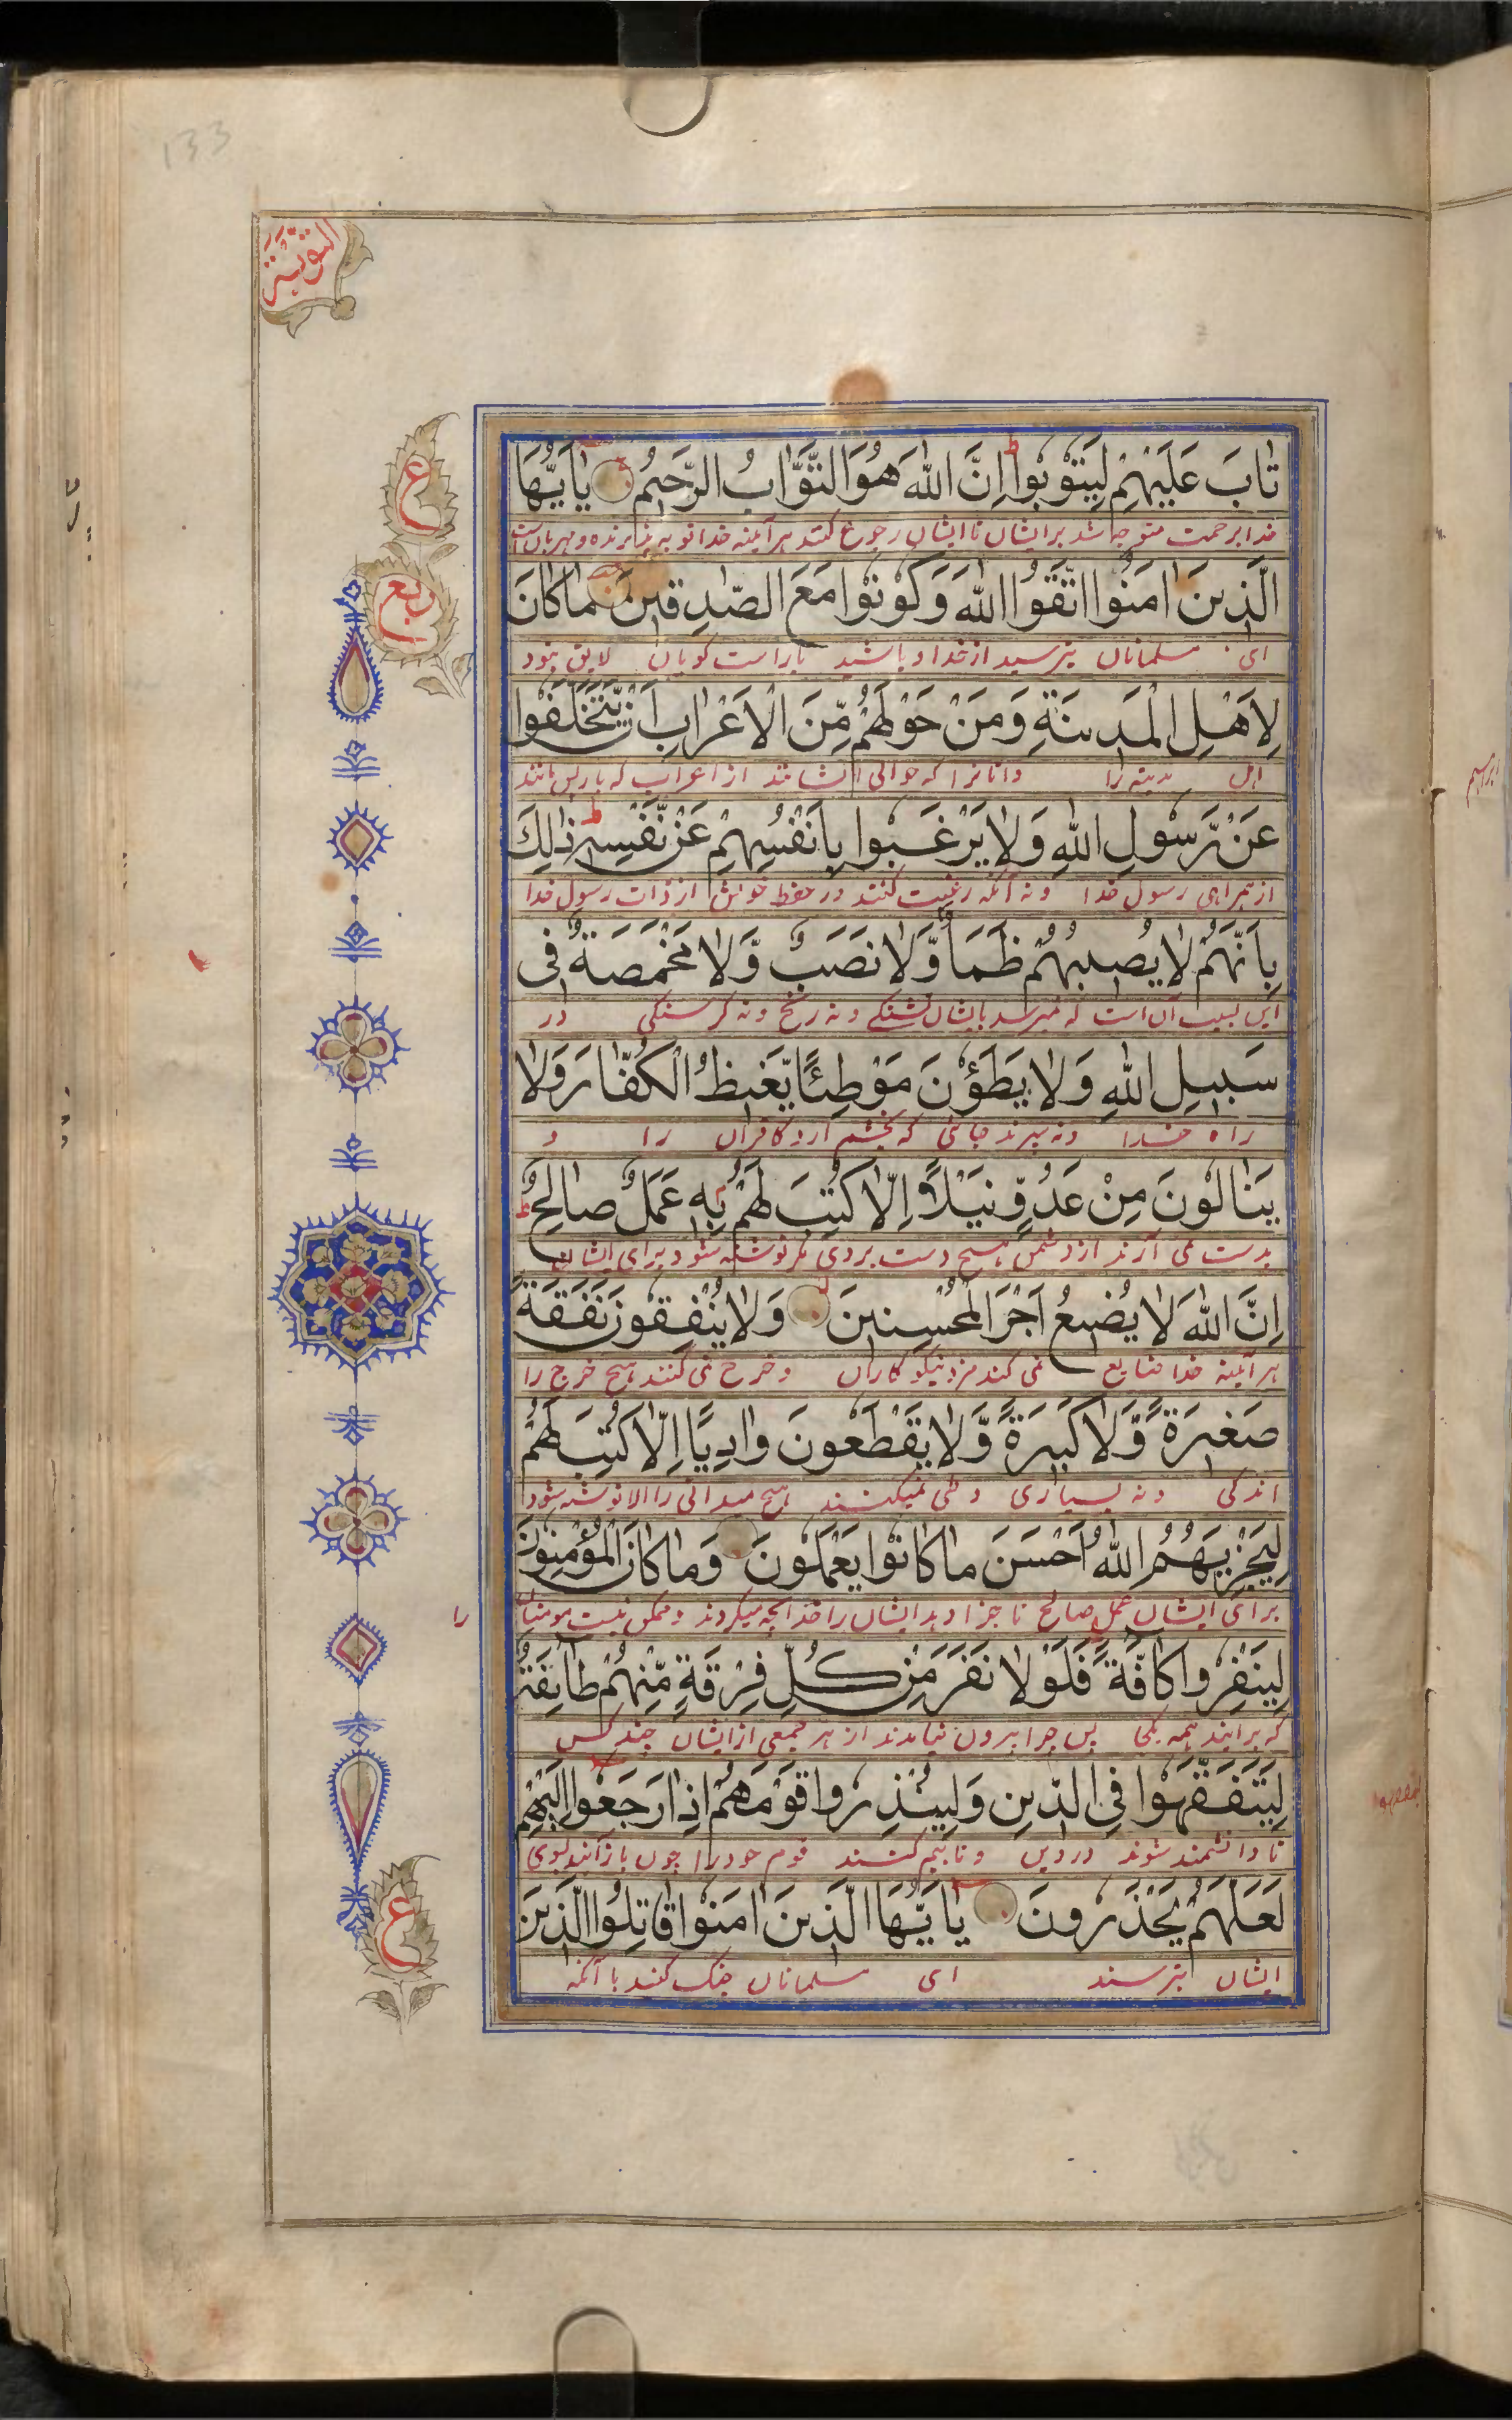 133
التوبة
تَابَ عَلَيْهِمْ لِيَتُوْبُوا ط اِنَّ اللّٰهَ هُوَ التَّوَّابُ الرَّحِيْمُ يٰاَيُّهَا
خدا برحمت متوجه شد بر ایشان تا ایشان رجوع کنند هر آئینه خدا توبه پذیرنده و مهربان است
ع
الَّذِيْنَ اٰمَنُوا اتَّقُوا اللّٰهَ وَكُوْنُوْا مَعَ الصّٰدِقِيْنَ مَا كَانَ
ربع
ای مسلمانان بترسید از خدا و باشید با راست کویان لایق نبود
لِاَهْلِ الْمَدِيْنَةِ وَمَنْ حَوْلَهُمْ مِّنَ الْاَعْرَابِ اَنْ يَّتَخَلَّفُوا
اهل مدینه را و آنانرا که حوالی ایشانند از اعراب که باز پس مانند
عَنْ رَّسُوْلِ اللّٰهِ وَلَا يَرْغَبُوا بِاَنْفُسِهِمْ عَنْ نَّفْسِهٖ ط ذٰلِكَ
از همراهی رسول خدا و نه آنکه رغبت کنند در حفظ خویش از ذات رسول خدا
بِاَنَّهُمْ لَا يُصِيْبُهُمْ ظَمَأٌ وَّلَا نَصَبٌ وَّلَا مَخْمَصَةٌ فِى
این بسبب آن است که نمیرسد بایشان تشنکے و نه رنج و نه کرسنکی در
سَبِيْلِ اللّٰهِ وَلَا يَطَؤُنَ مَوْطِئًا يَّغِيْظُ الْكُفَّارَ وَلَا
راه خدا و نه سپرند جائی که بخشم آرد کافران را و
يَنَالُوْنَ مِنْ عَدُوٍّ نَّيْلًا اِلَّا كُتِبَ لَهُمْ بِهٖ عَمَلٌ صَالِحٌ ط
بدست نمی آرند از دشمن هیچ دست بردی مکر نوشته شود برای ایشان
اِنَّ اللّٰهَ لَا يُضِيْعُ اَجْرَ الْمُحْسِنِيْنَ وَلَا يُنْفِقُوْنَ نَفَقَةً
هر آئینه خدا ضایع نمی کند مزد نیکو کاران و خرج نمی کنند هیچ خرج را
صَغِيْرَةً وَّلَا كَبِيْرَةً وَّلَا يَقْطَعُوْنَ وَادِيًا اِلَّا كُتِبَ لَهُمْ
اندکی و نه بسیاری و طی نمیکنند هیچ میدانی را الا نوشته شود
لِيَجْزِيَهُمُ اللّٰهُ اَحْسَنَ مَا كَانُوْا يَعْمَلُوْنَ وَمَا كَانَ الْمُؤْمِنُوْنَ
برای ایشان عمل صالح تا جزا دهد ایشان را خدا آنچه میکردند و ممکن نیست مومنان را
لِيَنْفِرُوا كَافَّةً فَلَوْلَا نَفَرَ مِنْ كُلِّ فِرْقَةٍ مِّنْهُمْ طَائِفَةٌ
که برایند همه یکجا پس چرا بیرون نیامدند از هر جمعی از ایشان چند کس
لِيَتَفَقَّهُوْا فِى الدِّيْنِ وَلِيُنْذِرُوا قَوْمَهُمْ اِذَا رَجَعُوا اِلَيْهِمْ
تا دانشمند شوند در دین و تا بیم کنند قوم خود را چون باز آیند بسوی
لَعَلَّهُمْ يَحْذَرُوْنَ يٰاَيُّهَا الَّذِيْنَ اٰمَنُوْا قَاتِلُوا الَّذِيْنَ
ع
ایشان بترسند ای مسلمانان جنک کنید با آنکه